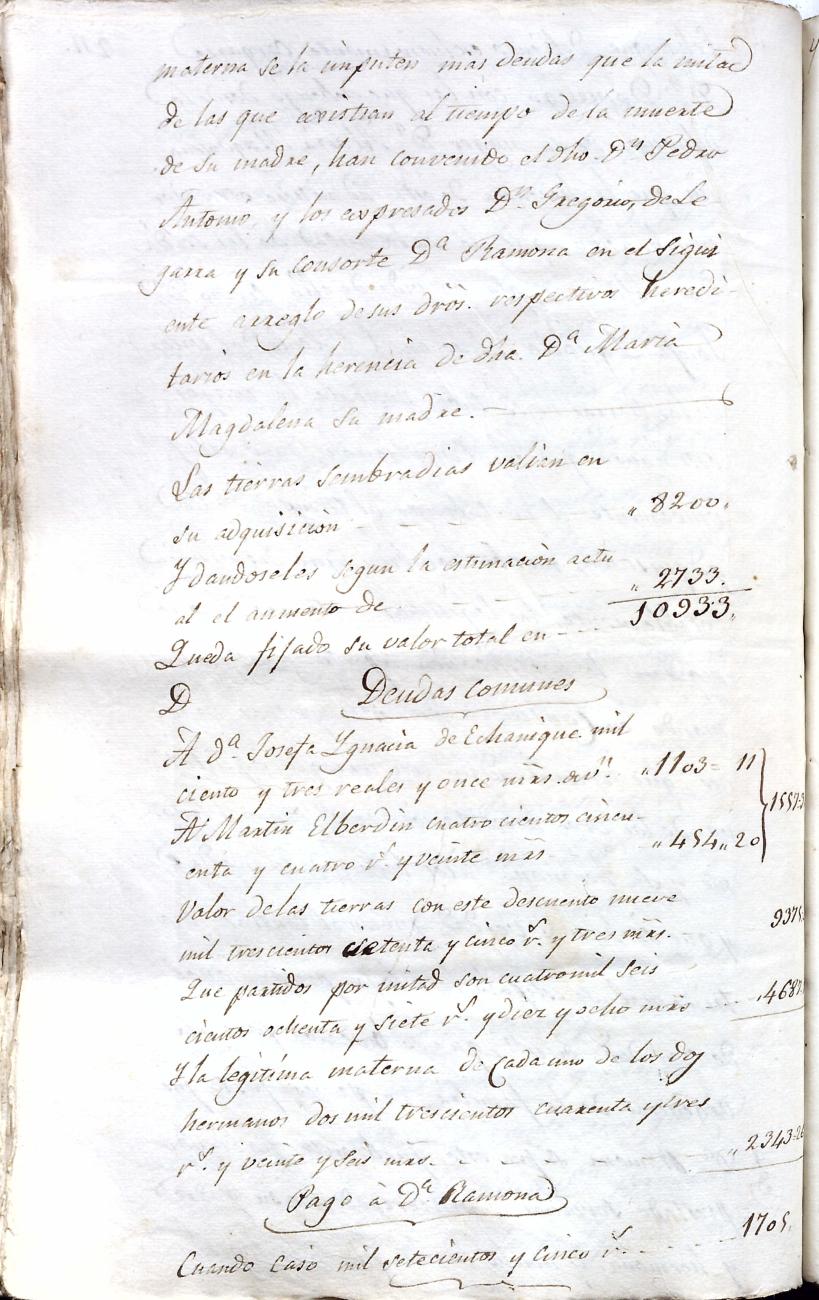 materna se la imputen más deudas que la mitad
de las que existian al tiempo de la muerte
de su madre, han convenido el dho. Dn Pedro
Antonio, y los expresados Dn. Gregorio, de Le-
garra y su consorte Da Ramona en el sigui
ente arreglo de sus dros. respectivos heredi-
tarios en la herencia de dha. Da Maria
Magdalena su madre.
Las tierras sembradias valian en
su adquisicion „ 8200„
Y dandoseles segun la estimacion actu
al el aumento de „ 2733.
Queda fijado su valor total en 10933„
D Deudas comunes
A da. Josefa Ygnacia de Echanique mil
ciento y tres reales y once mrs. de vn. „1103= 11
A Martin Elberdin cuatrocientos cincu-
enta y cuatro rs. y veinte mrs. „454„20
Valor de las tierras con este descuento nueve
mil trescientos setenta y cinco rs. y tres mrs. 9375
Que partidos por mitad son cuatro mil seis
cientos ochenta y siete rs. y diez y ocho mrs „4687
Y la legitima materna de cada uno de los dos
hermanos dos mil trescientos cuarenta y tres
rs. y veinte y seis mrs. „2343=26
Pago à Da. Ramona
Cuando casó mil setecientos y cinco rs. 1705.